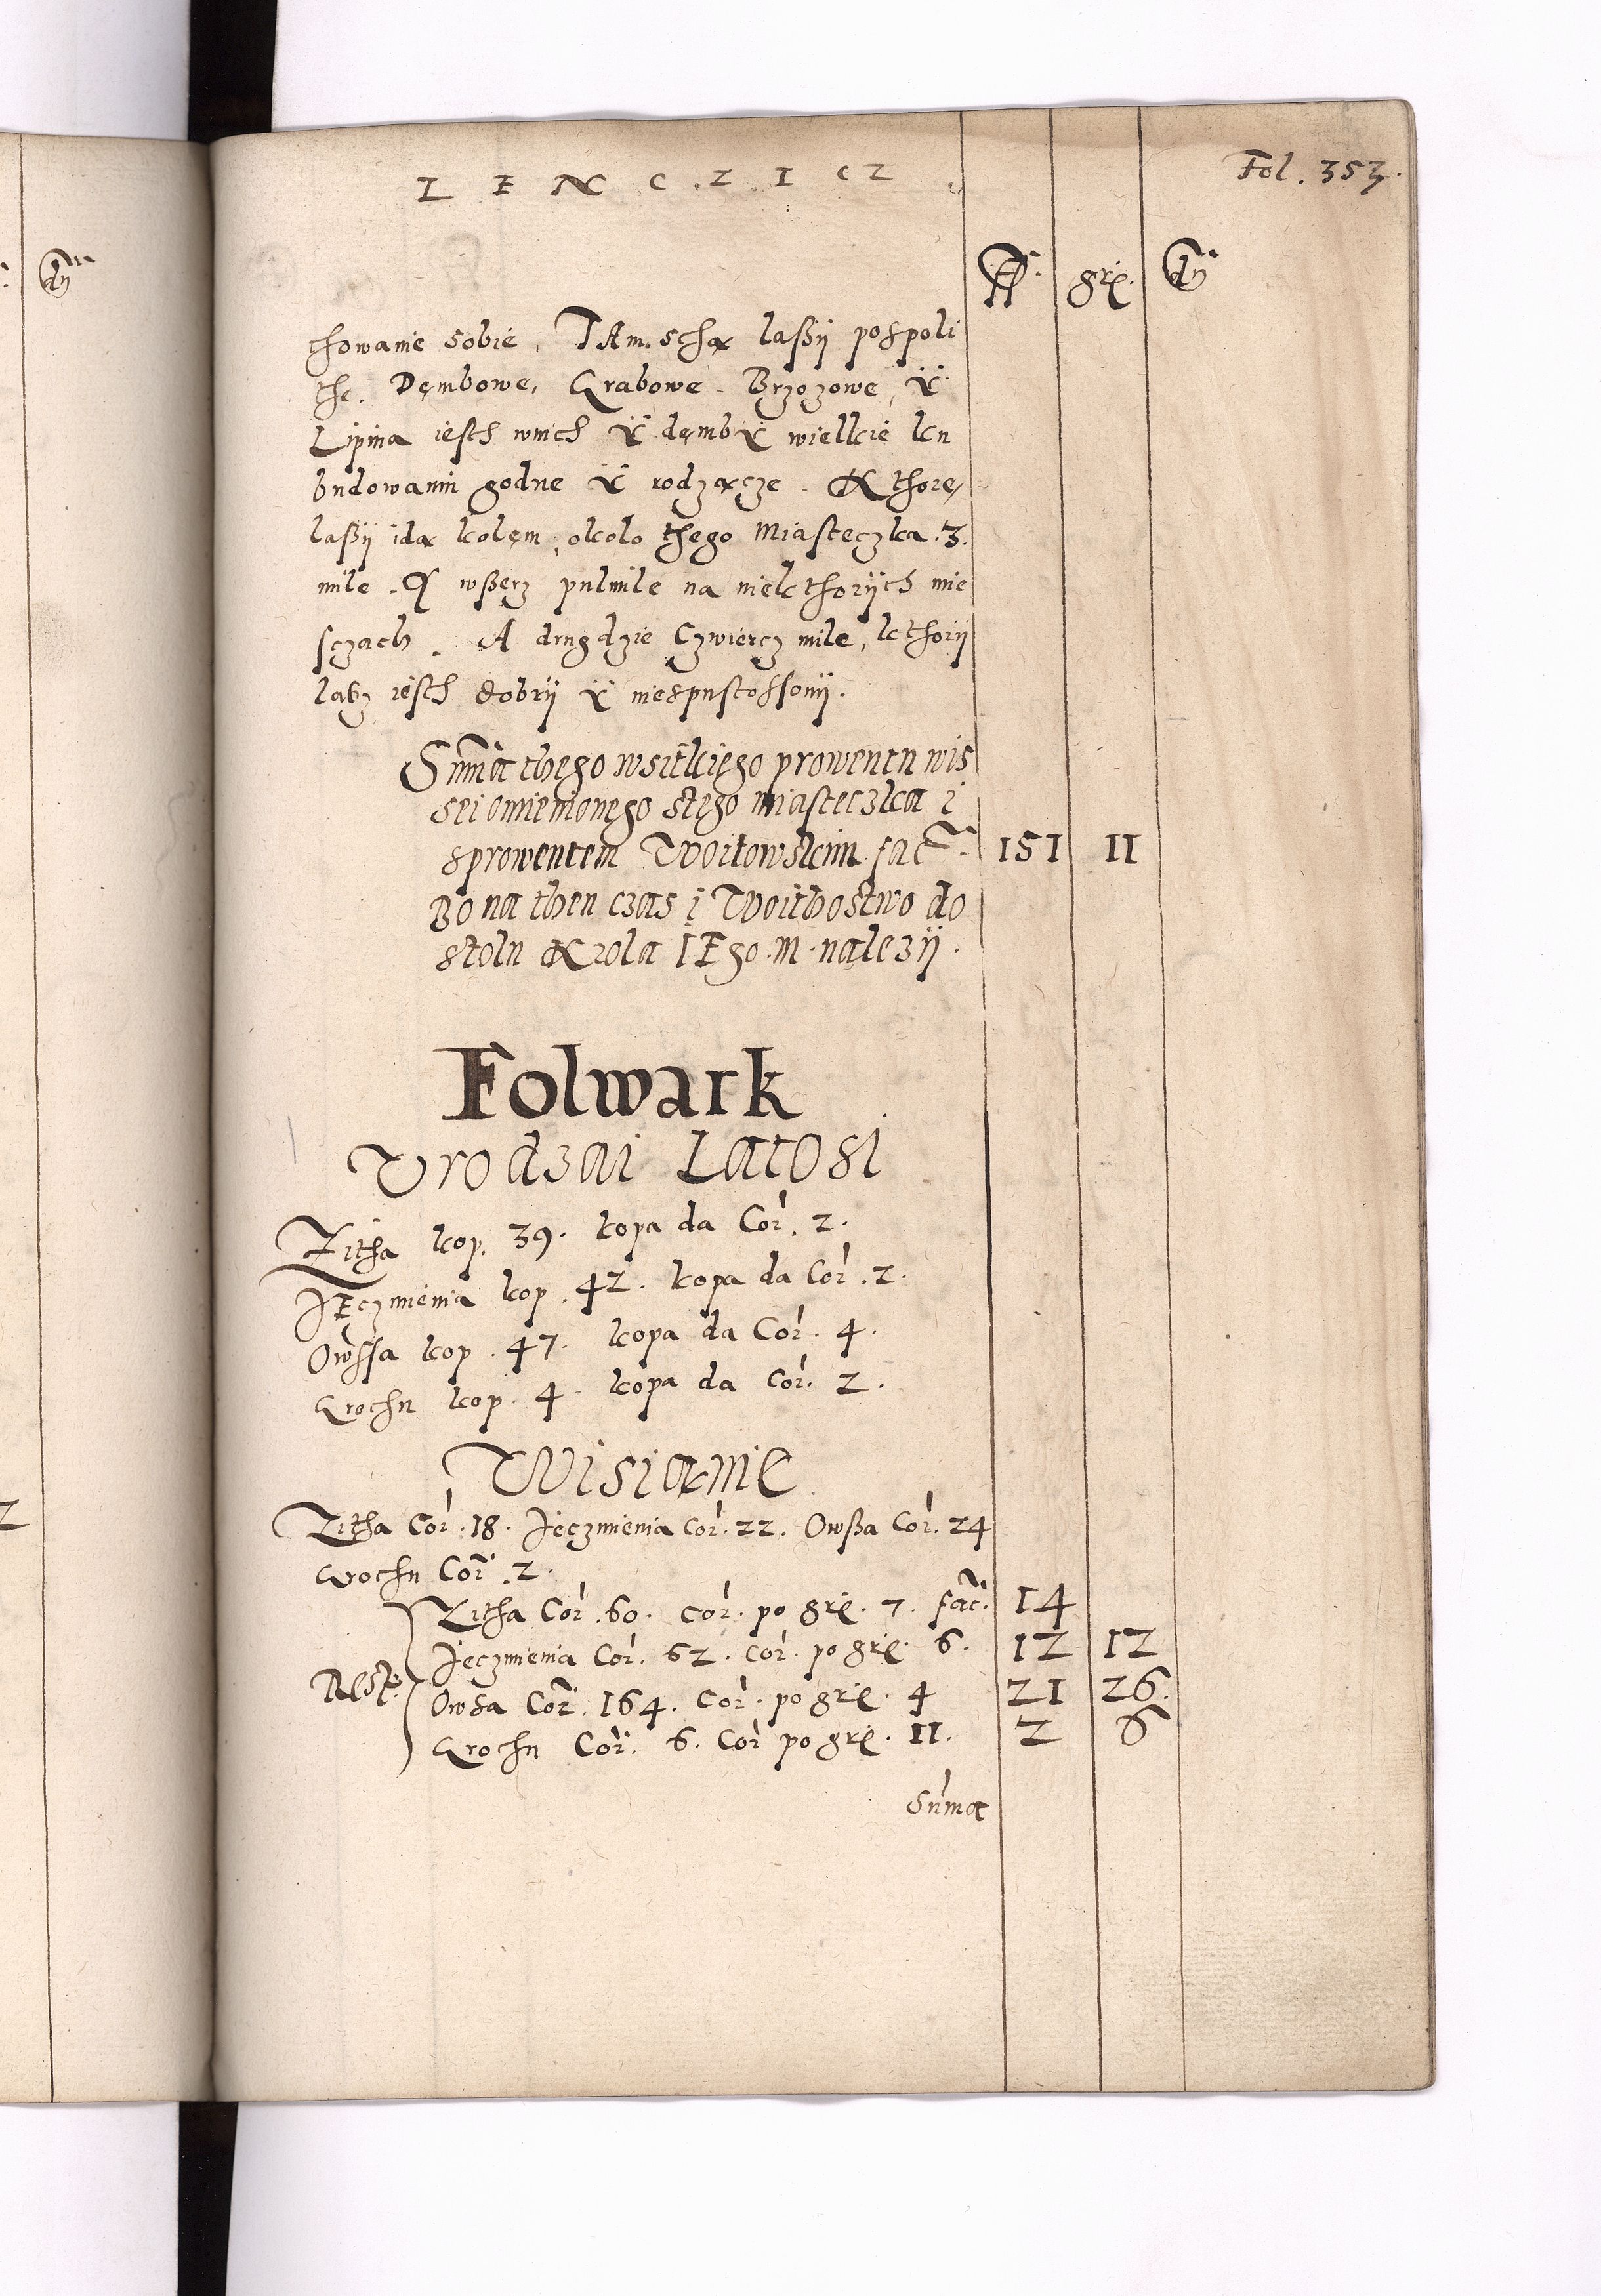 LENCZICZ
Fol. 353.
fl. grz. dn̄
chowanie sobie, TAm. schą lassÿ pospoli
the. Dęmbowe, Grabowe. Brzozowe, Ÿ
Lipina iesth wnich Ÿ dęmbÿ wielkie kn
budowaniu godne Ÿ rodzącze. Kthore,
lassÿ idą kolęm, okolo thego Miasteczka .3.
mile. A wsserz pulmile na niekthorÿch mie
sczach. A drugdzie Czwiercz mile, kthorÿ
lasz iesth dobrÿ Ÿ niespustossonÿ.
Suma thego wsitkięgo prowentu wis
sei omienionęgo stęgo miasteczka i
sprowentem Woitowskim fac. 151 11
Bo na then czas i Woithostwo do
stolu Krola IEgo. M. należÿ.
Folwark
Urodzai Latosi
Zitha kop. 39. kopa da Cor. 2.
JEczmienia kop. 42. kopa da Cor. 2.
Owssa kop. 47. kopa da Cor. 4.
Grochu kop. 4. kopa da Cor. 2.
Wisianie
Zitha Cor. 18. Jęczmienia Cor. 22. Owssa Cor. 24
Grochu Cor. 2.
Zitha Cor. 60. Cor. po grz. 7. fac. 14
Jęczmienia Cor. 62. Cor. po grz. 6. 12 12
Rest.
Owsa Cor. 164. Cor. po grz. 4 21 26.
Grochu Cor. 6. Cor po grz. 11. 2 6
Suma